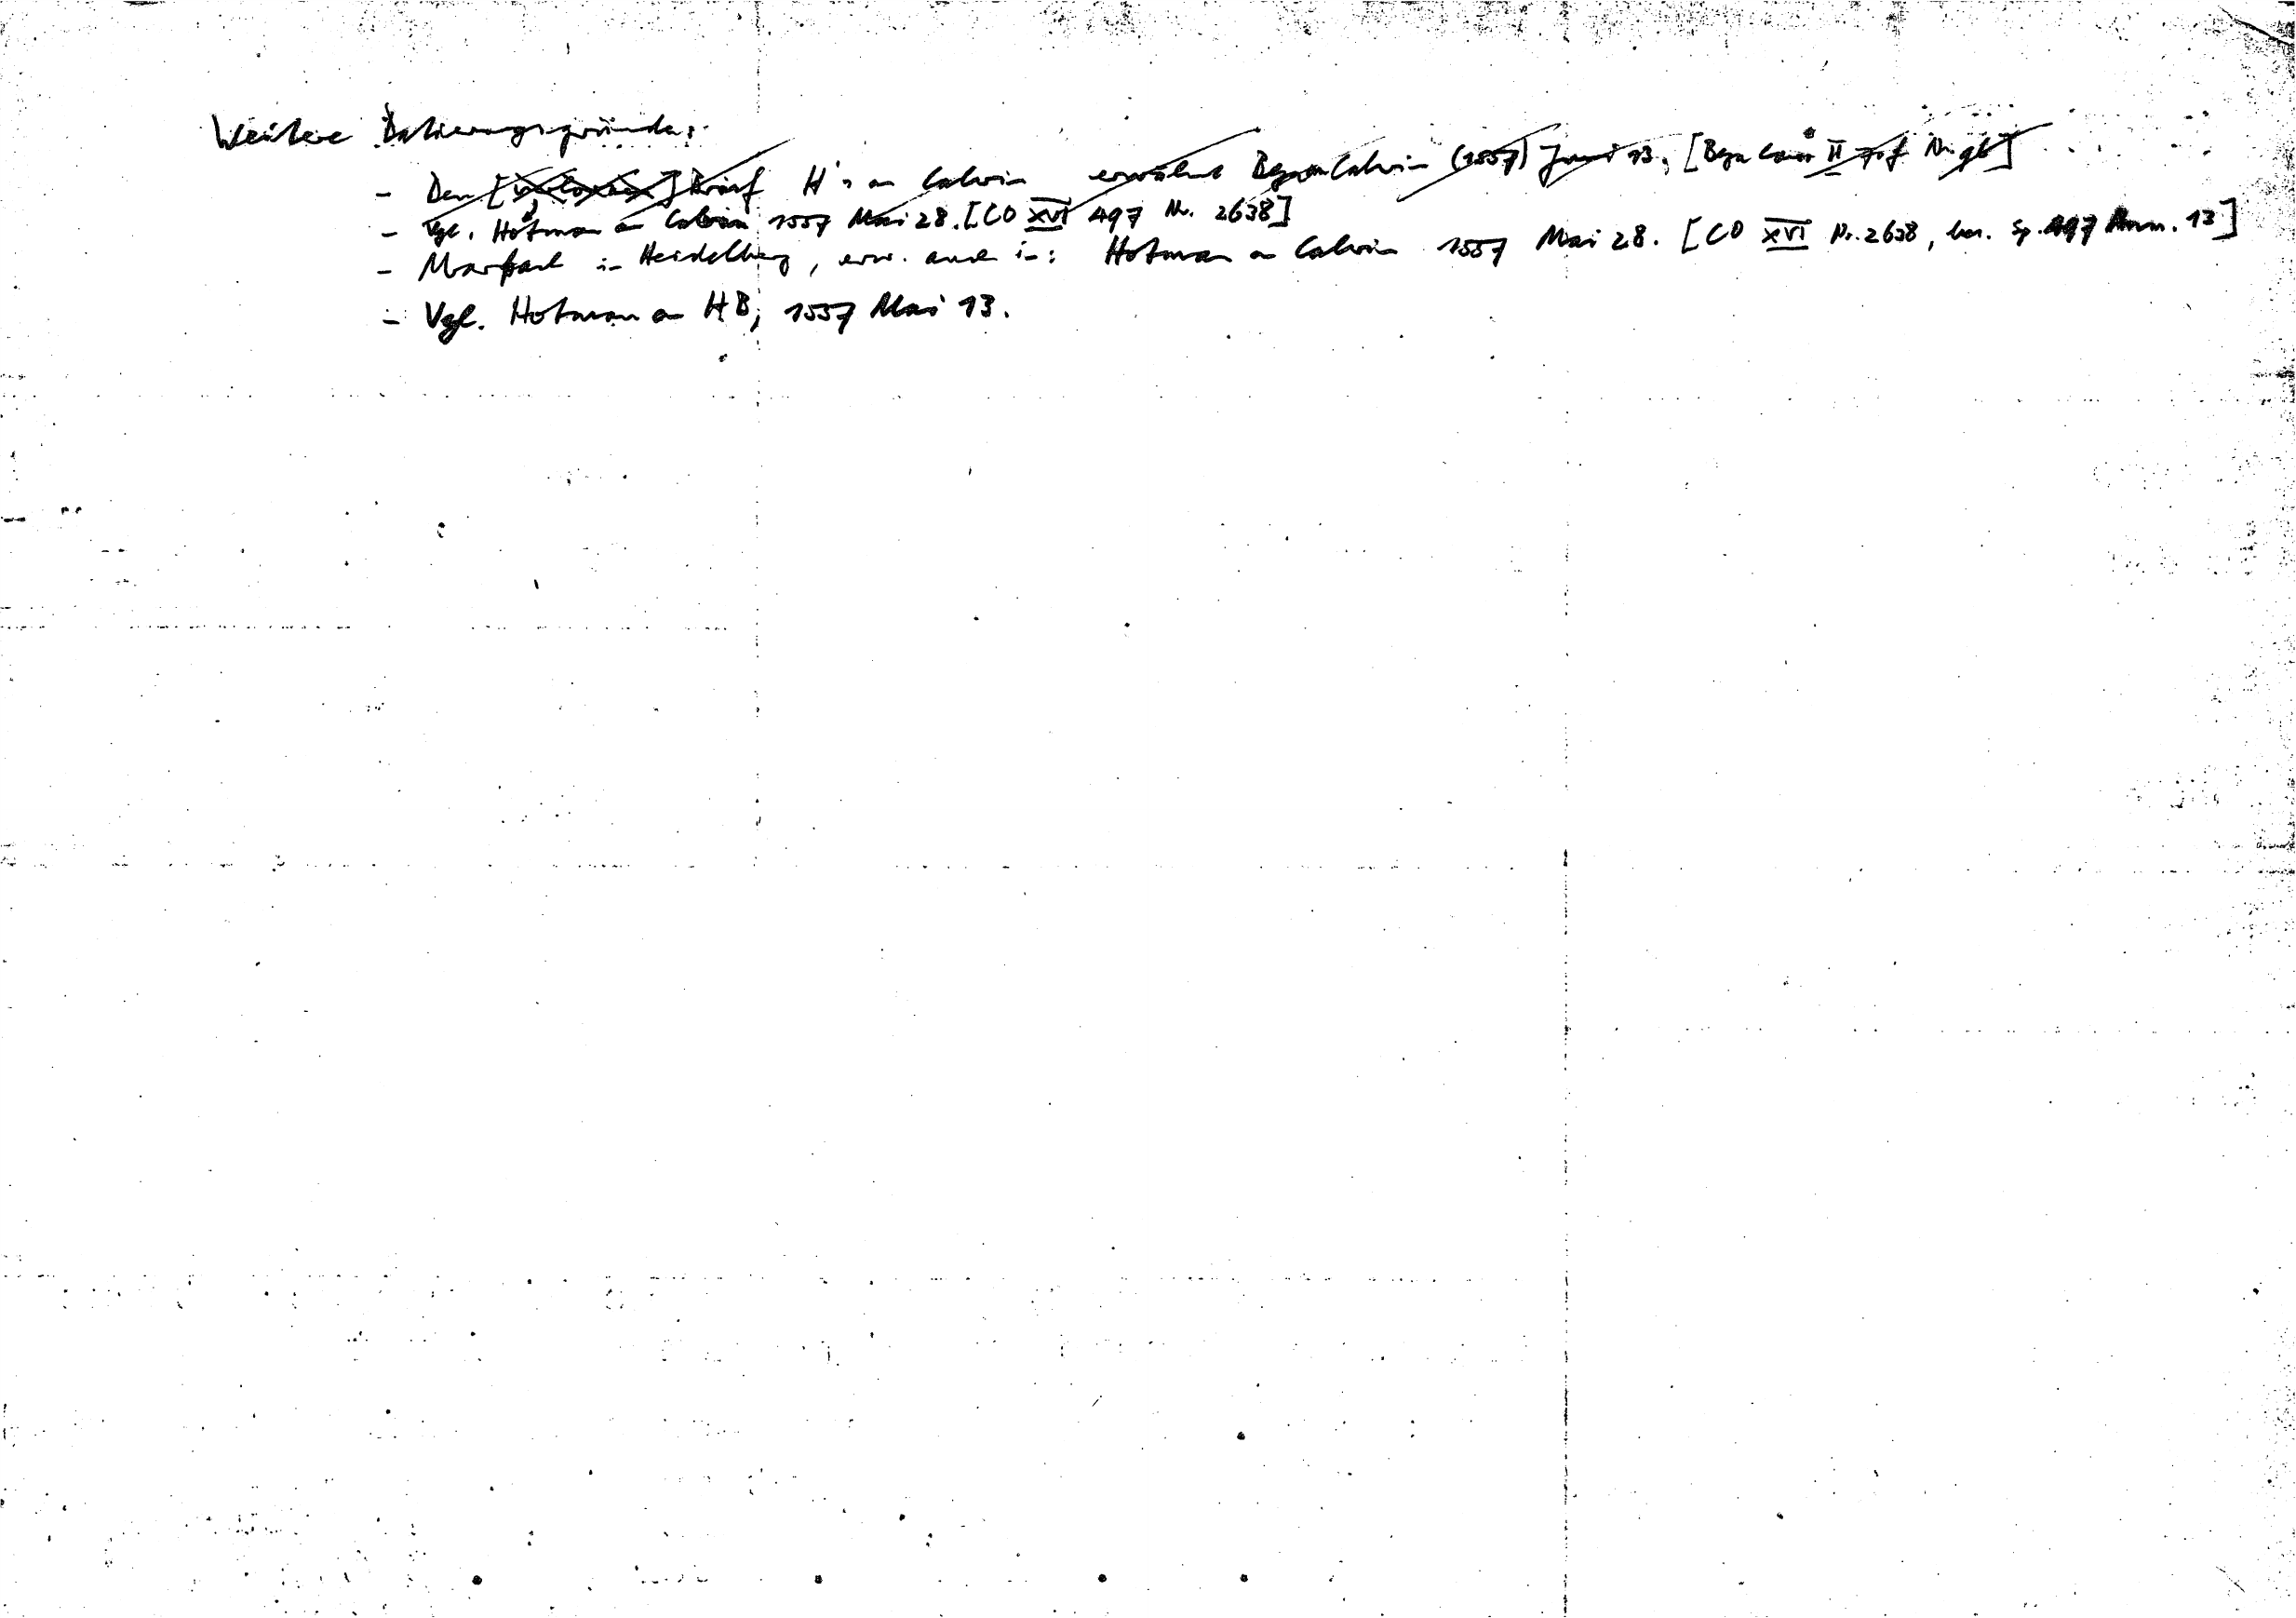 Weitere Datierungsgründe:
- Den [verlorenen] Brief H's an Calvin erwähnt Beza an Calvin (1557) Juni 13. [Beza Corr II 70f Nr. 96]
- Vgl. Hotman an Calvin 1557 Mai 28. [CO XVI 497 Nr. 2638]
- Marbach in Heidelberg, erw. auch in: Hotman an Calvin 1557 Mai 28. [CO XVI Nr. 2638, bes. Sp. 497 Anm. 13]
- Vgl. Hotman an HB, 1557 Mai 13.